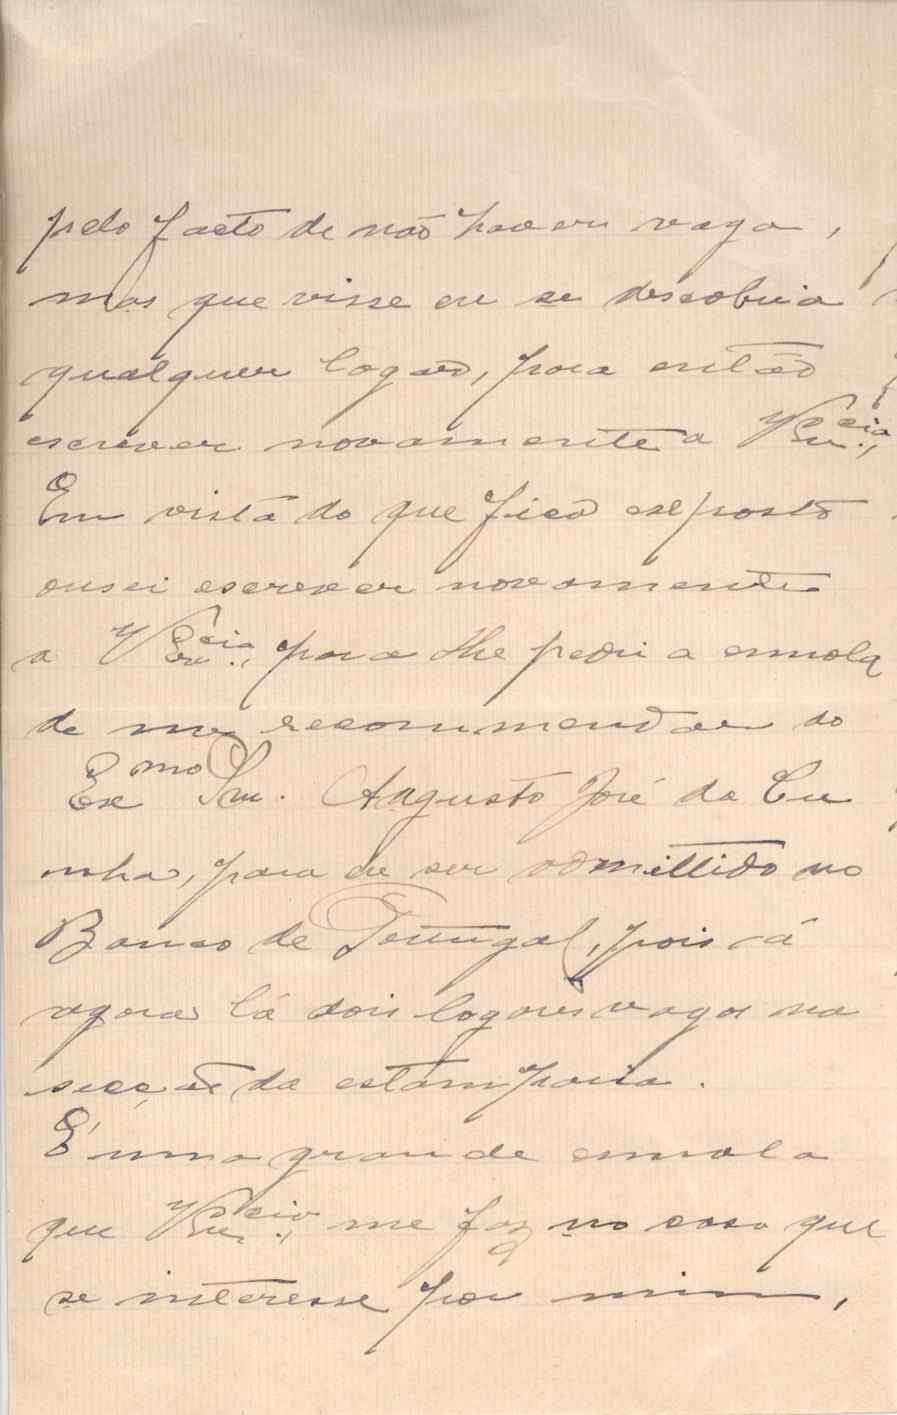 pelo facto de não haver vaga,
mas que visse eu se descobria
qualquer logar, para então
escrever novamente a V. Ex.cia,
Em vista do que fica exposto
ousei escrever novamente
a V. Ex.cia, para lhe pedir a esmola
de me recommendar ao
Ex.mo Snr. Augusto José da Cu
nha, para eu ser admittido no
Banco de Portugal, pois há
agora lá dois logares vagos na
secção da estamparia.
É uma grande esmola
que V. Ex.cia, me faz no caso que
se interesse por mim,